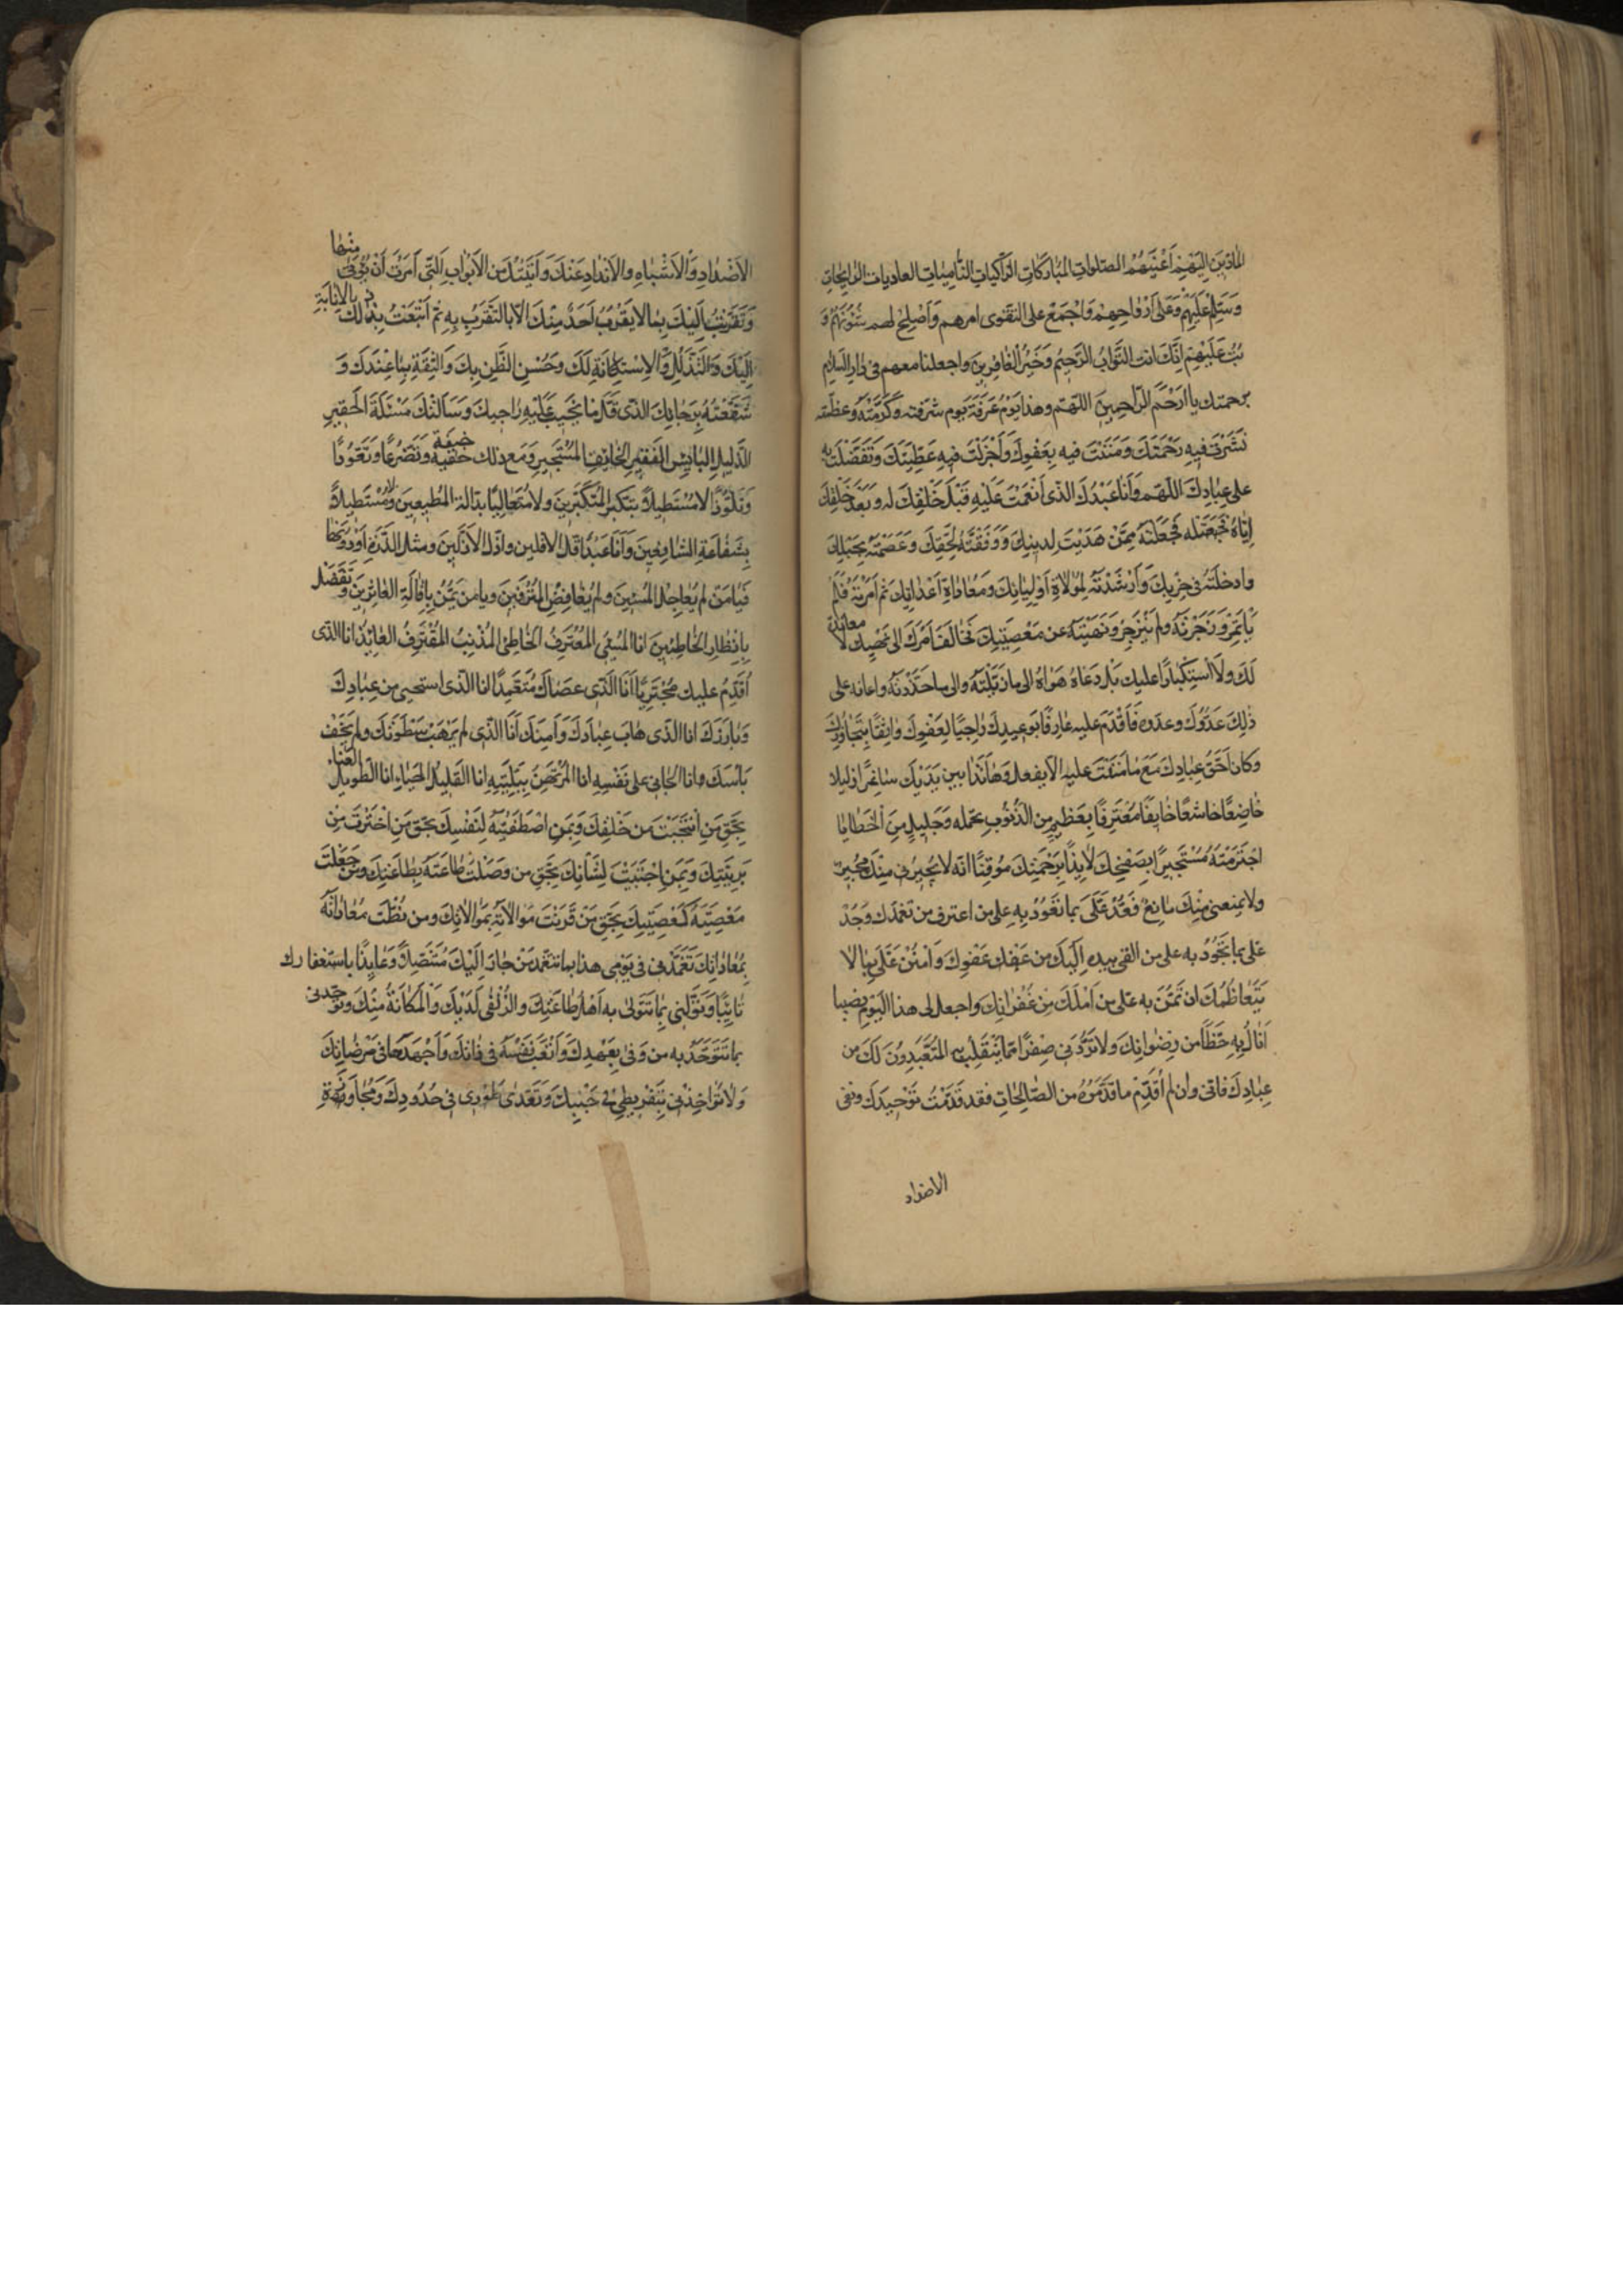 المادين اليهم اعينهم الصلوات المباركات الزاكيات الناميات العاديات الرايحات
وسلم عليهم وعلى ارواحهم واجمع على التقوى امرهم واصلح لهم شئونهم و
تب عليهم انك انت التواب الرحيم وخير الغافرين واجعلنا معهم في دار السلام
برحمتك يا ارحم الراحمين اللهم وهذا يوم عرفة يوم شرفته وكرمته وعظمته
نشرت فيه رحمتك ومننت فيه بعفوك واجزلت فيه عطيتك وتفضلت به
على عبادك اللهم وانا عبدك الذي انعمت عليه قبل خلقك له وبعد خلقك
اياه فجعلته ممن هديت لدينك ووفقته لحقك وعصمته بحبلك
وادخلته في حزبك وارشدته لموالاة اوليائك ومعاداة اعدائك ثم امرته فلم
يأتمر وزجرته ولم ينزجر ونهيته عن معصيتك فخالف امرك الى نهيك لا معاندة
لك ولا استكبارا عليك بل دعاه هواه الى ما زيلته والى ما حذرته واعانه على
ذلك عدوك وعدوه فاقدم عليه عارفا بوعيدك راجيا لعفوك واثقا بتجاوزك
وكان احق عبادك مع ما مننت عليه الا يفعل وها انذا بين يديك صاغرا ذليلا
خاضعا خاشعا خايفا معترفا بعظيم من الذنوب تحمله وجليل من الخطايا
اجترمته مستجيرا بصفحك لايذا برحمتك موقنا انه لا يجيرني منك مجير
ولا يمنعني منك مانع فعد علي بما تعود به على من اعترف من تغمدك وجد
علي بما تجود به على من القى بيده اليك من عفوك وامنن علي بما لا
يتعاظمك ان تمن به على من املك من غفرانك واجعل لي هذا اليوم نصيبا
انال به حظا من رضوانك ولا تردني صفرا مما ينقلب به المتعبدون لك من
عبادك فاني وان لم اقدم ما قدموه من الصالحات فقد قدمت توحيدك ونفى
الاضداد
الاضداد والاشباه والانداد عنك واتيتك من الابواب التي امرت ان يؤتى منها
وتقربت اليك بما لا يقرب احد منك الا بالتقرب به ثم اتبعت ذلك بالانابة
اليك والتذلل والاستكانة لك وحسن الظن بك والثقة بما عندك و
شفعته برجائك الذي قل ما يخيب عليه راجيك وسالتك مسئلة الحقير
الذليل البائس الفقير الخائف المستجير ومع ذلك خيفة وتضرعا وتعوذا
وتلوذا لا مستطيلا بتكبر المتكبرين ولا متعاليا بدالة المطيعين ولا مستطيلا
بشفاعة الشافعين وانا عبد اقل الاقلين واذل الاذلين ومثل الذرة او دونها
فيا من لم يعاجل المسيئين ولم يغافص المترفين ويا من يمن باقالة العاثرين وتفضل
بانظار الخاطئين انا المسئ المعترف الخاطئ المذنب المقترف العائذ انا الذي
اقدم عليك مجتريا انا الذي عصاك متعمدا انا الذي استحيى من عبادك
وبارزك انا الذي هاب عبادك وامنك انا الذي لم يرهب سطوتك ولم يخف
باسك وانا الجاني على نفسه انا المرتهن ببليته انا القليل الحياء انا الطويل العناء
بحق من انتجبت من خلقك وبمن اصطفيته لنفسك بحق من اخترت من
بريتك وبمن اجتبيت لشانك بحق من وصلت طاعته بطاعتك ومن جعلت
معصيته كمعصيتك بحق من قرنت موالاته بموالاتك ومن نظت معاداته
بمعاداتك تغمدني في يومي هذا بما تتغمد من جار اليك متنصلا وعايذا باستغفارك
تائبا وتولني بما تتولى به اهل طاعتك والزلفى لديك والمكانة منك وتوحدني
بما تتوحد به من وفى بعهدك واتعب نفسه في ذاتك واجهدها في مرضاتك
ولا تؤاخذني بتفريطي في جنبك وتعدى طوري في حدودك ومجاوزة